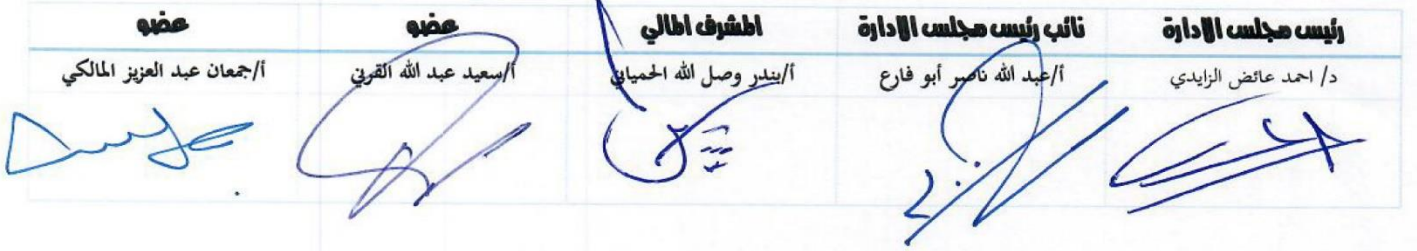 رئيس مجلس الادارة نائب رئيس مجلس الادارة المشرف المالي عضو عضو
د/ احمد عائض الزايدي أ/عبد الله ناصر أبو فارع أ/بندر وصل الله الحمياني أ/سعيد عبد الله القرني أ/جمعان عبد العزيز المالكي